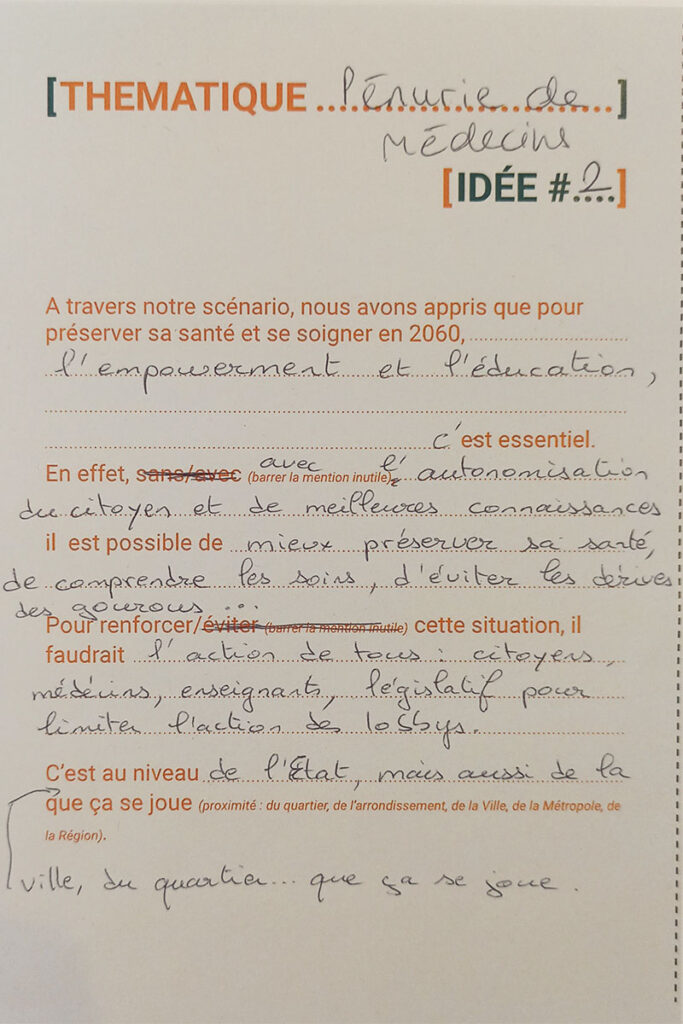 [THEMATIQUE Pénurie de]
médecins
[IDÉE #2]
A travers notre scénario, nous avons appris que pour
préserver sa santé et se soigner en 2060,
l'empowerment et l'éducation,
c'est essentiel.
En effet, sans/avec avec (barrer la mention inutile), l'autonomisation
du citoyen et de meilleures connaissances
il est possible de mieux préserver sa santé,
de comprendre les soins, d'éviter les dérives
des gourous...
Pour renforcer/éviter (barrer la mention inutile) cette situation, il
faudrait l'action de tous : citoyens,
médécins, enseignants, législatif pour
limiter l'action des lobbys.
C'est au niveau de l'État, mais aussi de la
que ça se joue (proximité : du quartier, de l'arrondissement, de la Ville, de la Métropole, de
la Région).
ville, du quartier... que ça se joue.